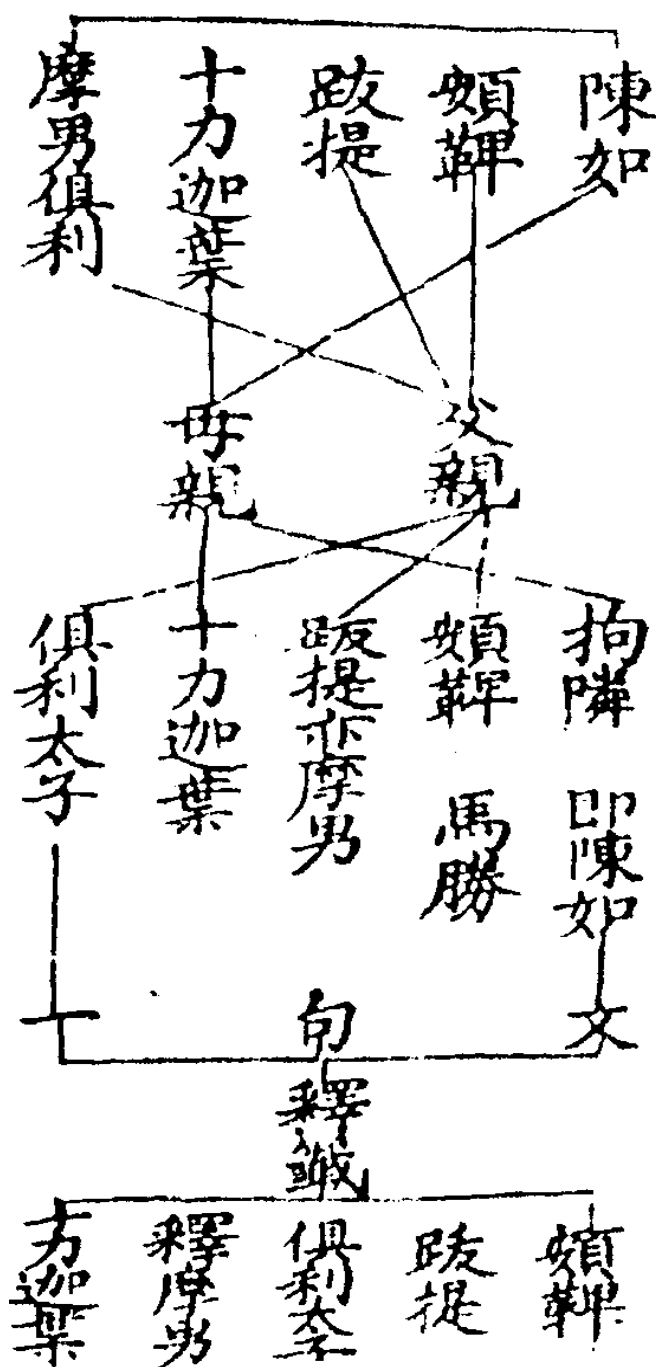 陳如
頞鞞
跋提
十力迦葉
摩男俱利
父親
母親
拘隣 即陳如
頞鞞 馬勝
跋提亦摩男
十力迦葉
俱利太子
文
句
十
釋籤
頞鞞
跋提
俱利太子
釋摩男
十力迦葉